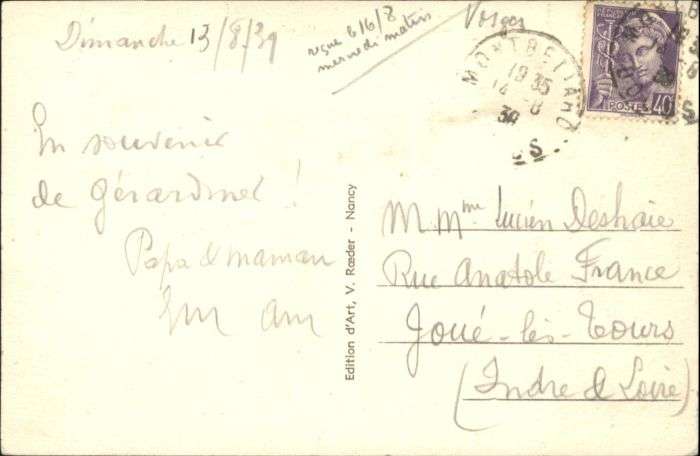 Dimanche 13/8/39
mercredi matin
Vosges
MONTBELIARD
19 35
14 -8
39
POSTES 40
En souvenir
de Gérardmer !
Papa & maman
M. Mme Lucien Deshaie
Rue Anatole France
Joué-lès-Tours
(Indre & Loire)
Edition d'Art, V. Rœder - Nancy